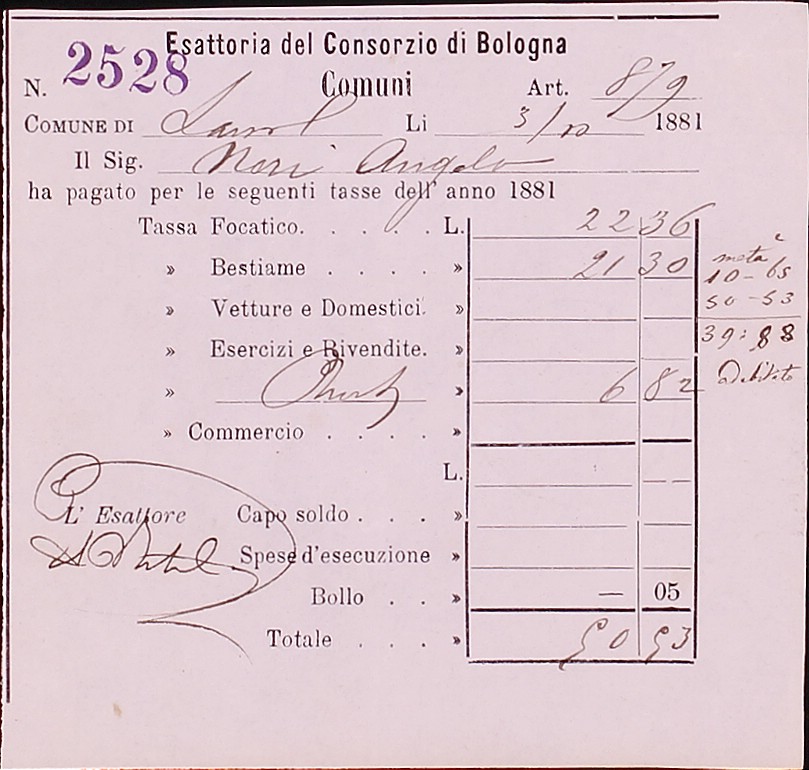 Esattoria del Consorzio di Bologna
N. 2528 Comuni Art. 879
COMUNE DI Li 3/10 1881
Il Sig. Neri Angelo
ha pagato per le seguenti tasse dell' anno 1881
Tassa Focatico. . . . . L. 22 36
» Bestiame . . . . » 21 30
metà
10-65
» Vetture e Domestici. »
50-53
» Esercizi e Rivendite. »
39:88
» » 6 82
Debitato
» Commercio . . . . »
L.
L' Esattore Capo soldo . . . »
Spese d'esecuzione »
Bollo . . » — 05
Totale . . . » 50 53